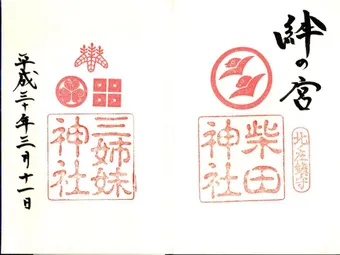 絆の宮
柴田
神社
北庄鎮守
三姉妹
神社
平成三十年三月十一日